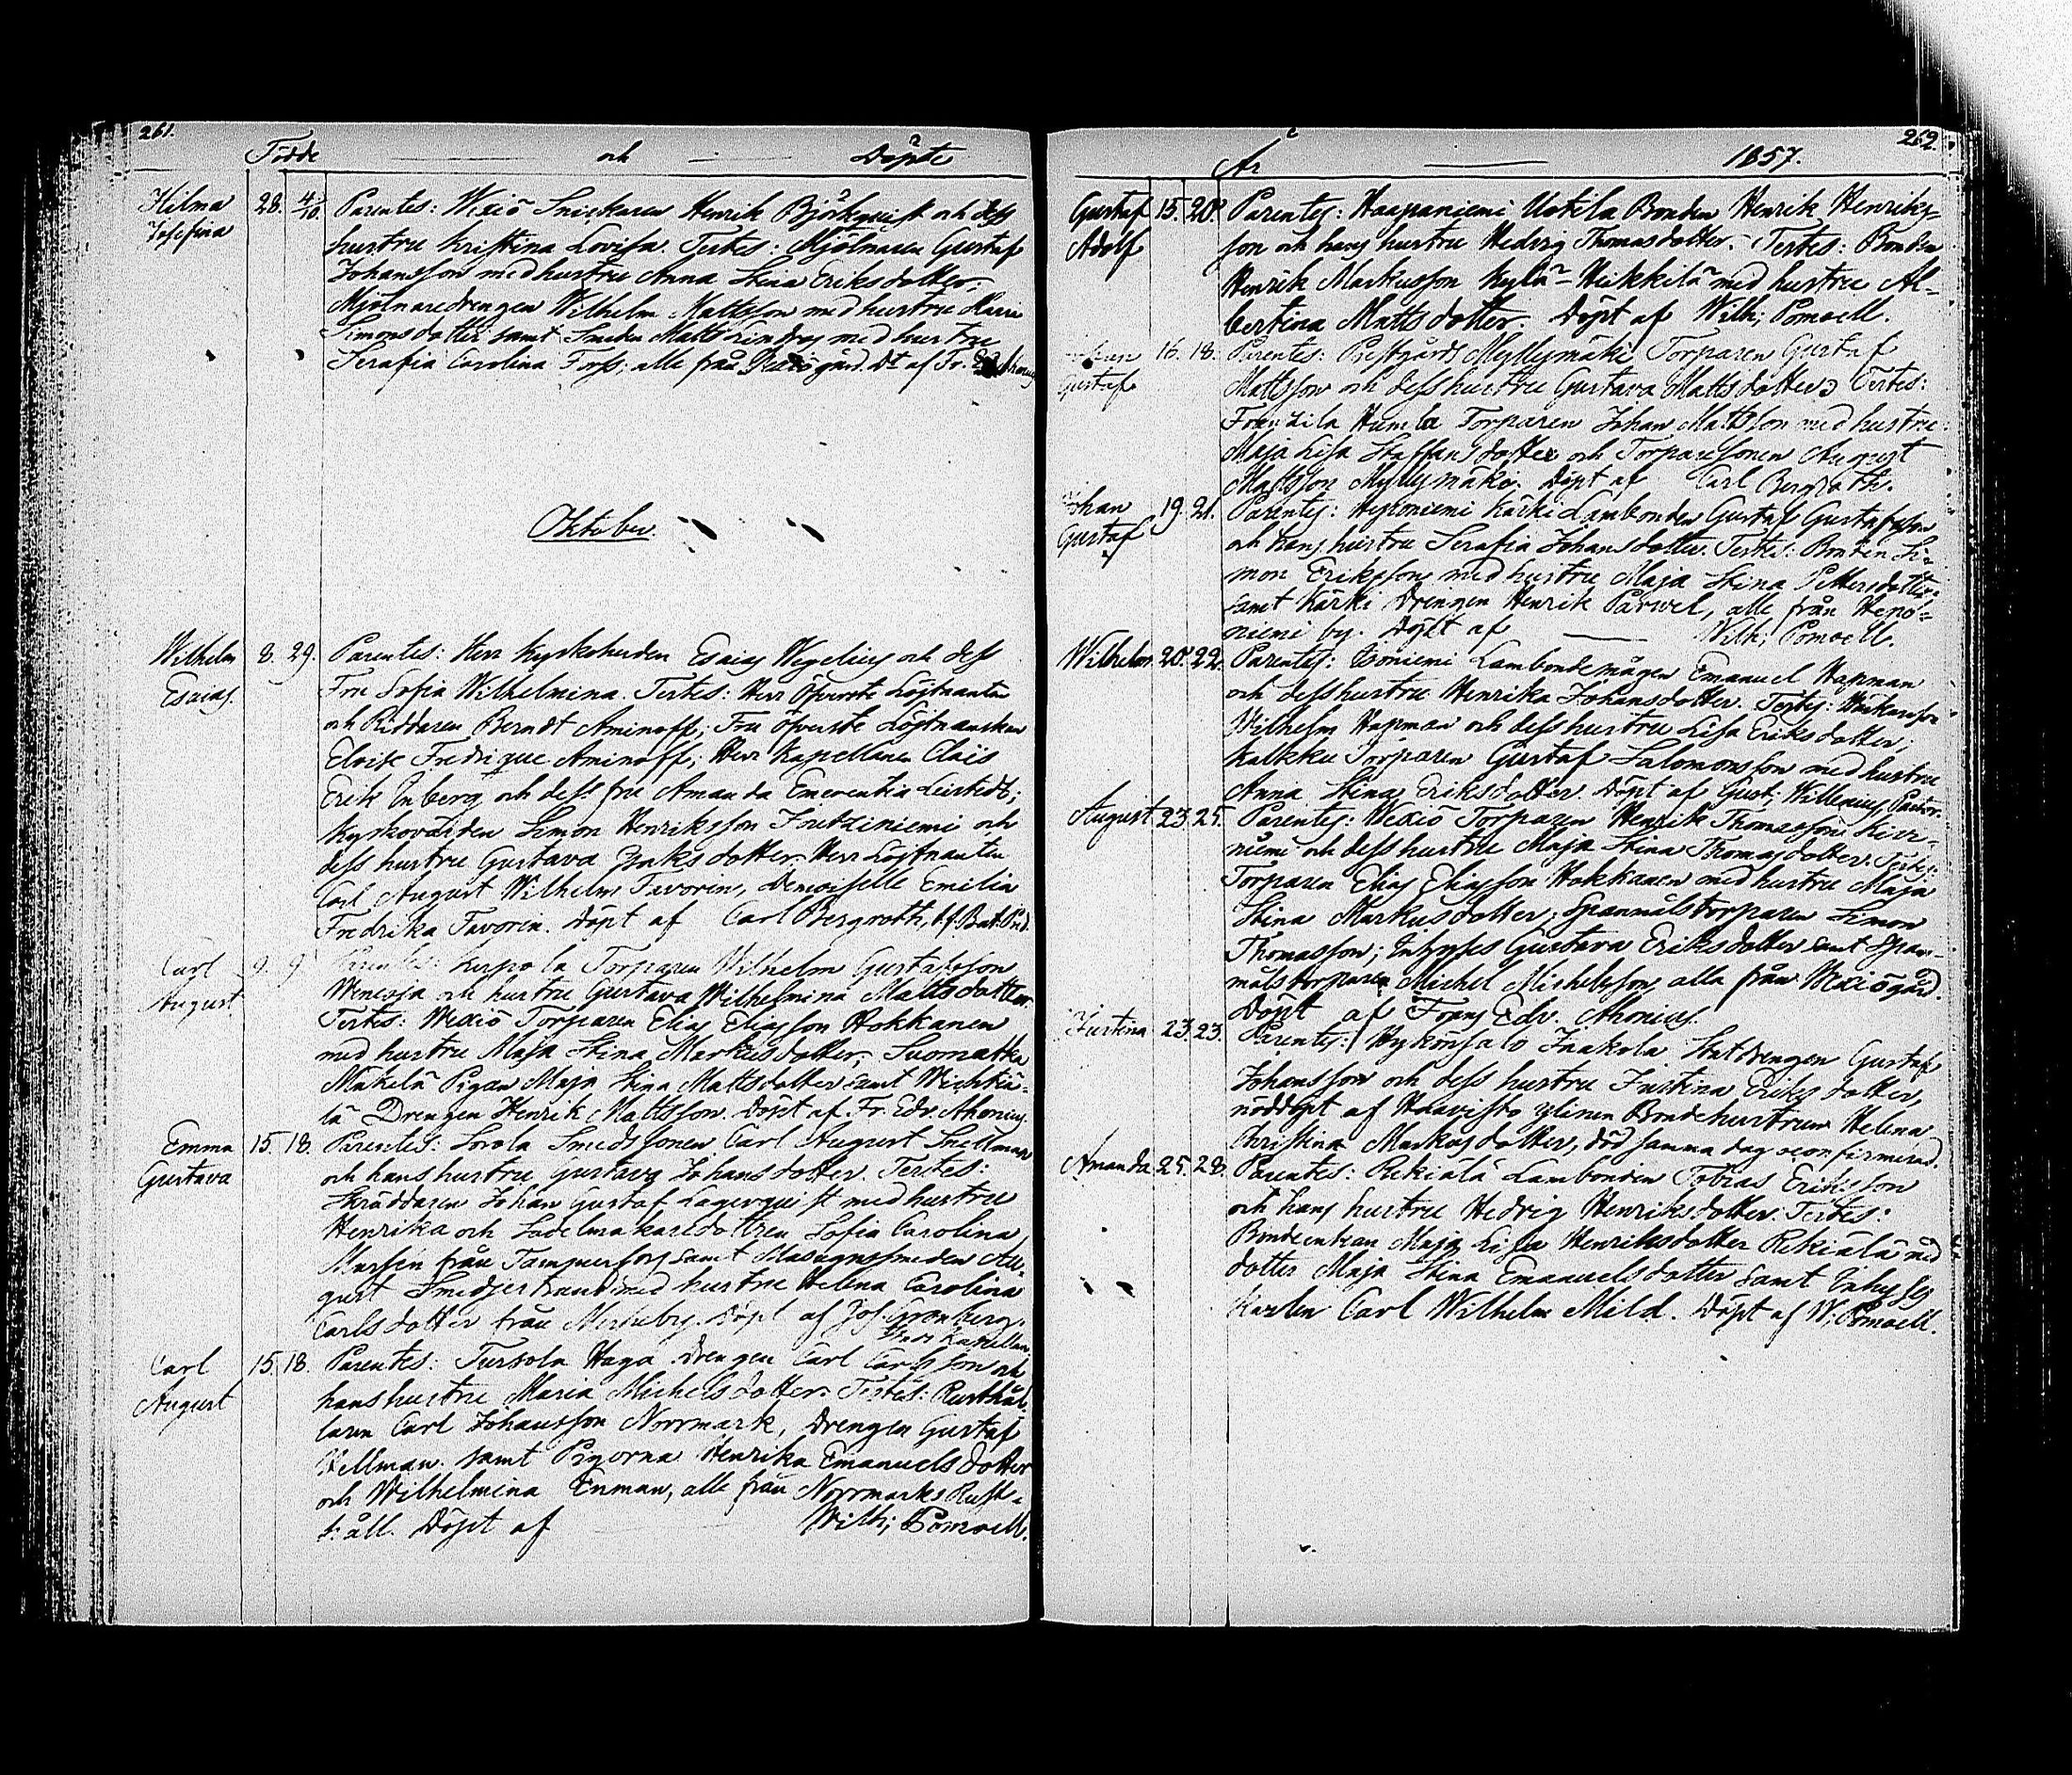 261.
Födde och Döpte
Hilma Josefina 28. 4/10. Parentes: Wexiö Snickaren Henrik Björkqvist och dess
hustru Kristina Lovisa. Testes: Mjölnaren Gustaf
Johansson med hustru Anna Stina Eriksdotter;
Mjölnaredrengen Wilhelm Mattsson med hustru Maria
Simonsdotter samt Smeden Matts Lindroos med hustru
Serafia Carolina Forss, alle från Wexiö gård. Dt af Fr.
Oktober.
Wilhelm Esaias. 8. 29. Parentes: Herr Kyrkoherden Esaias Wegelius och dess
Fru Sofia Wilhelmina. Testes: Herr Öfverste Löjtnanten
och Riddaren Berndt Aminoff; Fru Öfverste Löjtnantskan
Elvire Fredrique Aminoff; Herr Kapellanen Claës
Erik Enberg och dess fru Amanda Emerentia Leistedt;
Kyrkovärden Simon Henriksson Knutziniemi och
dess hustru Gustava Isaksdotter. Herr Löjtnanten
Carl August Wilhelm Favorin, Demoiselle Emilia
Fredrika Favorin. Döpt af Carl Bergroth, tf. Bat. Pred.
Carl August 9. 9 Parentes: Kurpola Torparen Wilhelm Gustafsson
Wenesja och hustru Gustava Wilhelmina Mattsdotter.
Testes: Wexiö Torparen Elias Eliasson Hokkanen
med hustru Maja Stina Markusdotter; Suomatka
Mäkelä Pigan Maja Stina Mattsdotter samt Wichtiä-
lä Drengen Henrik Mattsson. Döpt af Fr. Edv. Ahonius.
Emma Gustava 15. 18. Parentes: Sorola Smedssonen Carl August Snellman
och hans hustru Gustava Johansdotter. Testes:
Skräddaren Johan Gustaf Lagerqvist med hustru
Henrika och Sadelmakaredottren Sofia Carolina
från Tammerfors samt Masugnssmeden Au-
gust Smedjestrand med hustru Helena Carolina
Carlsdotter från Döpt af Jos. Grönberg.
Carl August 15. 18. Parentes: Tursola Haga Drengen Carl Carlsson och
hans hustru Maria Michelsdotter. Testes: Rusthål-
laren Carl Johansson Norrmark, Drengen Gustaf
Hellman samt Pigorna Henrika Emanuelsdotter
och Wilhelmina Enman, alle från Norrmarks Rust-
håll. Döpt af Wilh; Pomoell.
262.
År 1857.
Gustaf Adolf 15. 20. Parentes: Haapaniemi Uotila Bonden Henrik Henriks-
son och hans hustru Hedvig Thomasdotter. Testes: Bonden
Henrik Markusson Kylä-Heikkilä med hustru Al-
bertina Mattsdotter. Döpt af Wilh; Pomoell.
Johan Gustaf 16. 18. Parentes: Prestgårds Myllymäki Torparen Gustaf
Mattsson och dess hustru Gustava Mattsdotter. Testes:
Humla Torparen Johan Mattsson med hustru
Maja Lisa Staffansdotter och Torparesonen August
Mattsson Myllymäki. Döpt af Carl Bergroth.
Johan Gustaf 19. 21. Parentes: Heponiemi Kärki Lambonden Gustaf Gustafsson
och hans hustru Serafia Johansdotter. Testes: Bonden Si-
mon Eriksson med hustru Maja Stina Pettersdotter
samt Kärki Drengen Henrik Parwel, alle från Hepo-
niemi by. Döpt af Wilh; Pomoell.
Wilhelm 20. 22. Parentes: Isoniemi Lambondemågen Emanuel Hapman
och dess hustru Henrika Johansdotter. Testes:
Wilhelm Hapman och dess hustru Lisa Eriksdotter;
Kalkku Torparen Gustaf Salomonsson med hustru
Anna Stina Eriksdotter. Döpt af Gust; Willenius, Pastor.
August 23. 25. Parentes: Wexiö Torparen Henrik Thomasson Kivi-
niemi och dess hustru Maja Stina Thomasdotter. Testes:
Torparen Elias Eliasson Hokkanen med hustru Maja
Stina Markusdotter; Spannmålstorparen Simon
Thomasson; Inhyses Gustava Eriksdotter samt Span-
målstorparen Michel Michelsson, alla från Wexiö gård.
Döpt af Frans Edv. Ahonius.
Justina 23. 23. Parentes: Hykönsalo Inakola Statdrengen Gustaf
Johansson och dess hustru Justina Eriksdotter,
nöddöpt af Haavisto Ylinen Bondehustrun Helena
Christina Markusdotter, död samma dag oconfirmerad.
Amanda 25. 28. Parentes: Rekiälä Lambonden Tobias Eriksson
och hans hustru Hedvig Henriksdotter. Testes:
Bondeenkan Maja Lisa Henriksdotter Rekiälä med
dotter Maja Stina Emanuelsdotter samt Inhyses
Karlen Carl Wilhelm Mild. Döpt af W; Pomoell.